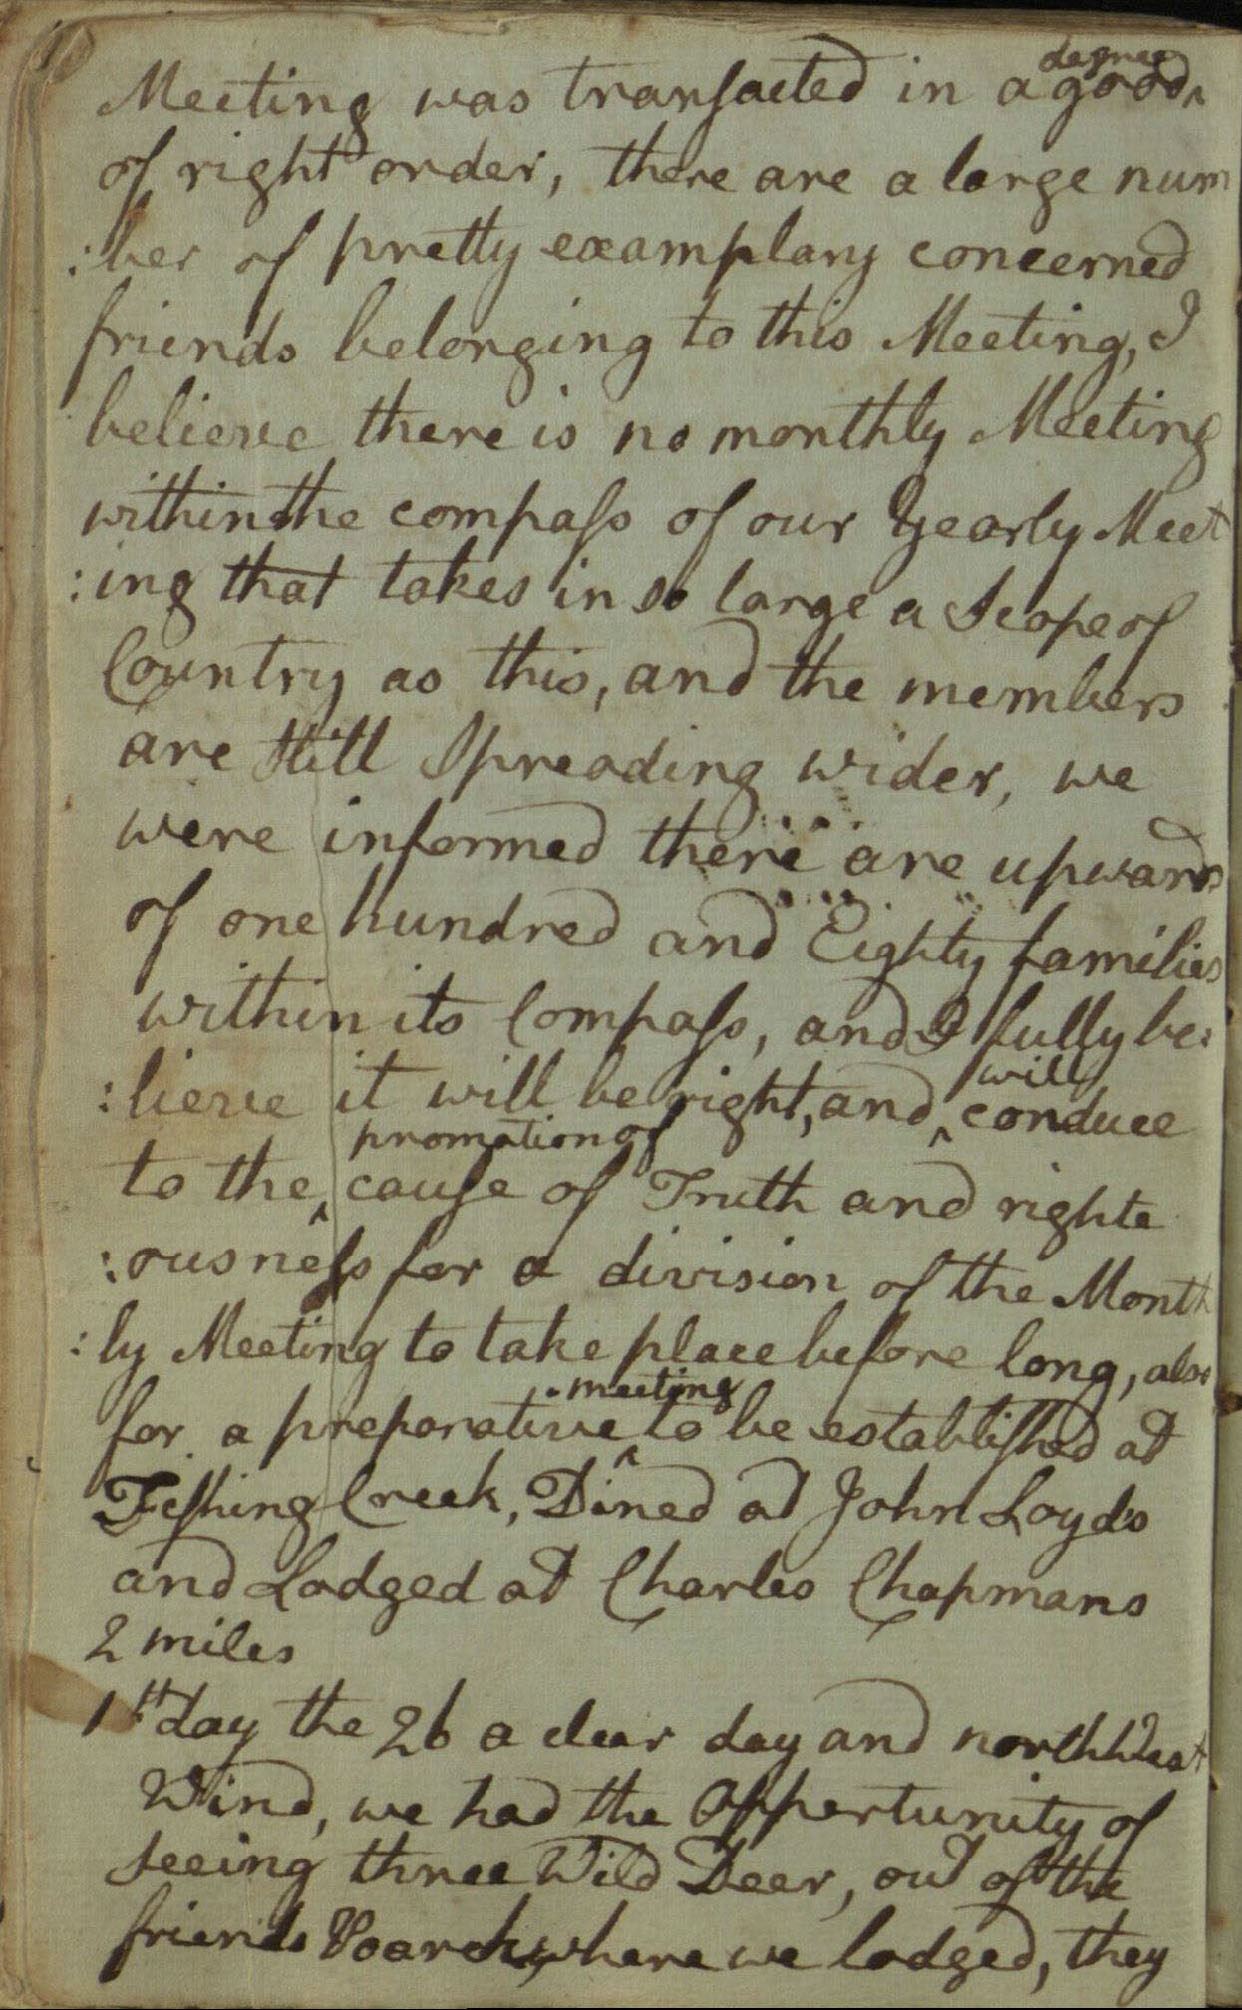 Meeting was transacted in a good ^degree
of right order, there are a large num
:ber of pretty examplary concerned
friends belonging to this Meeting, I
believe there is no monthly Meeting
within the compass of our Yearly Meet
:ing that takes in so large a Scope of
Country as this, and the members
are Still Spreading wider, we
were informed there are upwards
of one hundred and Eighty families
within its Compass, and I fully be:
:lieve it will be right, and ^will conduce
to the ^promotion of cause of Truth and righte
:ousness for a division of the Month
:ly Meeting to take place before long, also
for a preparative ^meeting to be established at
Fishing Creek, Dined at John Loyds
and Lodged at Charles Chapmans
2 miles
1st day the 26 a clear day and northWest
Wind, we had the Oppertunity of
seeing three Wild Deer, out of the
friends Poarch, where we lodged, they